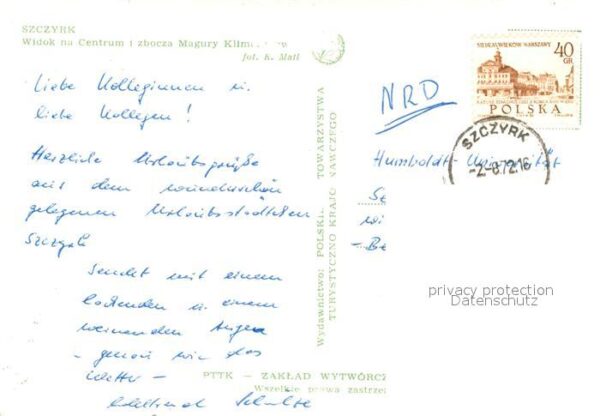 SZCZYRK
Widok na Centrum i zbocza Magury
fot. K. Mali
Liebe Kolleginnen u.
liebe Kollegen!
Herzliche Urlaubsgrüße
aus dem wunderschön
gelegenen Urlaubsstädtchen
Szczyrk
Sendet mit einem
lachenden u. einem
weinenden Auge
– genau wie das
Wetter –
Schulze
Wydawnictwo: POLSKIE TOWARZYSTWA
TURYSTYCZNO KRAJOZNAWCZEGO
PTTK – ZAKŁAD WYTWÓRC
Wszelkie prawa zastrze
SIEDEM WIEKÓW WARSZAWY
40
GR
POLSKA
SZCZYRK
-2-8.72.16
NRD
Humboldt-Universität
Se
– Be
privacy protection
Datenschutz